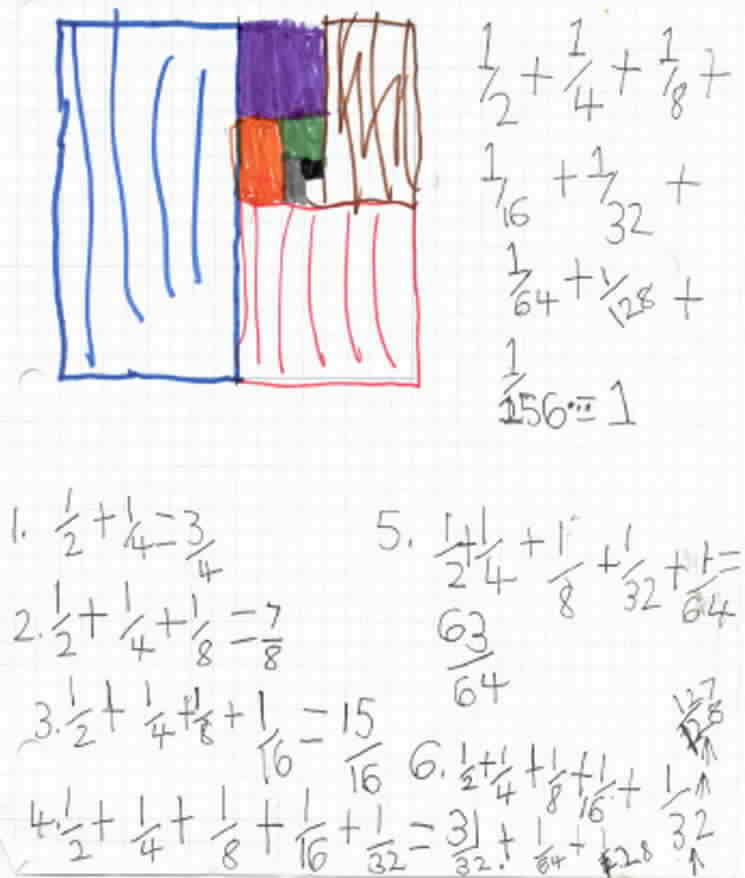 1/2 + 1/4 + 1/8 +
1/16 + 1/32 +
1/64 + 1/128 +
1/256...= 1
1. 1/2 + 1/4 = 3/4
2. 1/2 + 1/4 + 1/8 = 7/8
3. 1/2 + 1/4 + 1/8 + 1/16 = 15/16
4. 1/2 + 1/4 + 1/8 + 1/16 + 1/32 = 31/32
5. 1/2 + 1/4 + 1/8 + 1/32 + 1/64 =
63/64
6. 1/2 + 1/4 + 1/8 + 1/16 + 1/32
+ 1/64 + 1/128
↑
↑
↑
127/128